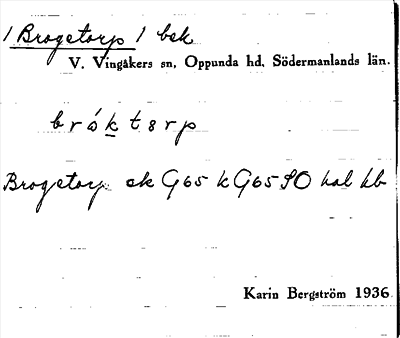 / Brogetorp / bsk
V. Vingåkers sn, Oppunda hd, Södermanlands län.
bróktorp
Brogetorp ek G65 k G65 SO hal kb
Karin Bergström 1936